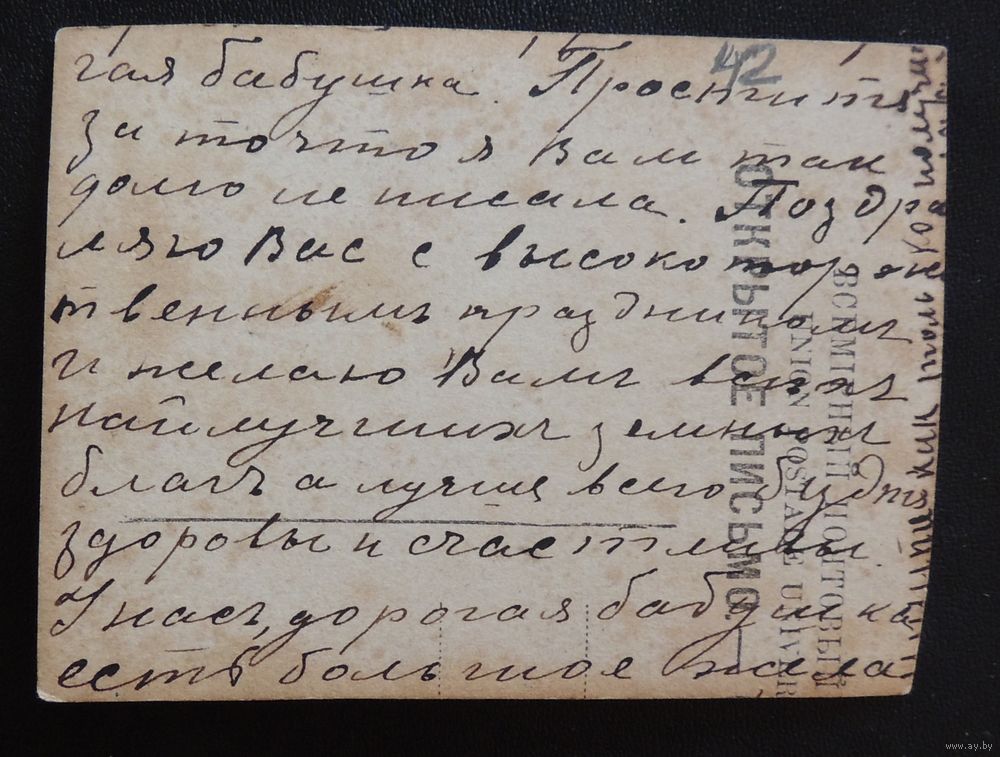 гая бабушка. Простите
за то что я Вам так
долго не писала. Поздра
ляю Вас с высокоторже
твенным праздником
и желаю Вамъ всехъ
наилучшихъ земныхъ
благъ а лучше всего будте
здоровы и счастливы
У насъ, дорогая бабушка
есть большое жела
42
ОТКРЫТОЕ ПИСЬМО
ВСЕМІРНЫЙ ПОЧТОВЫЙ
UNION POSTALE UNIVER
www.ay.by